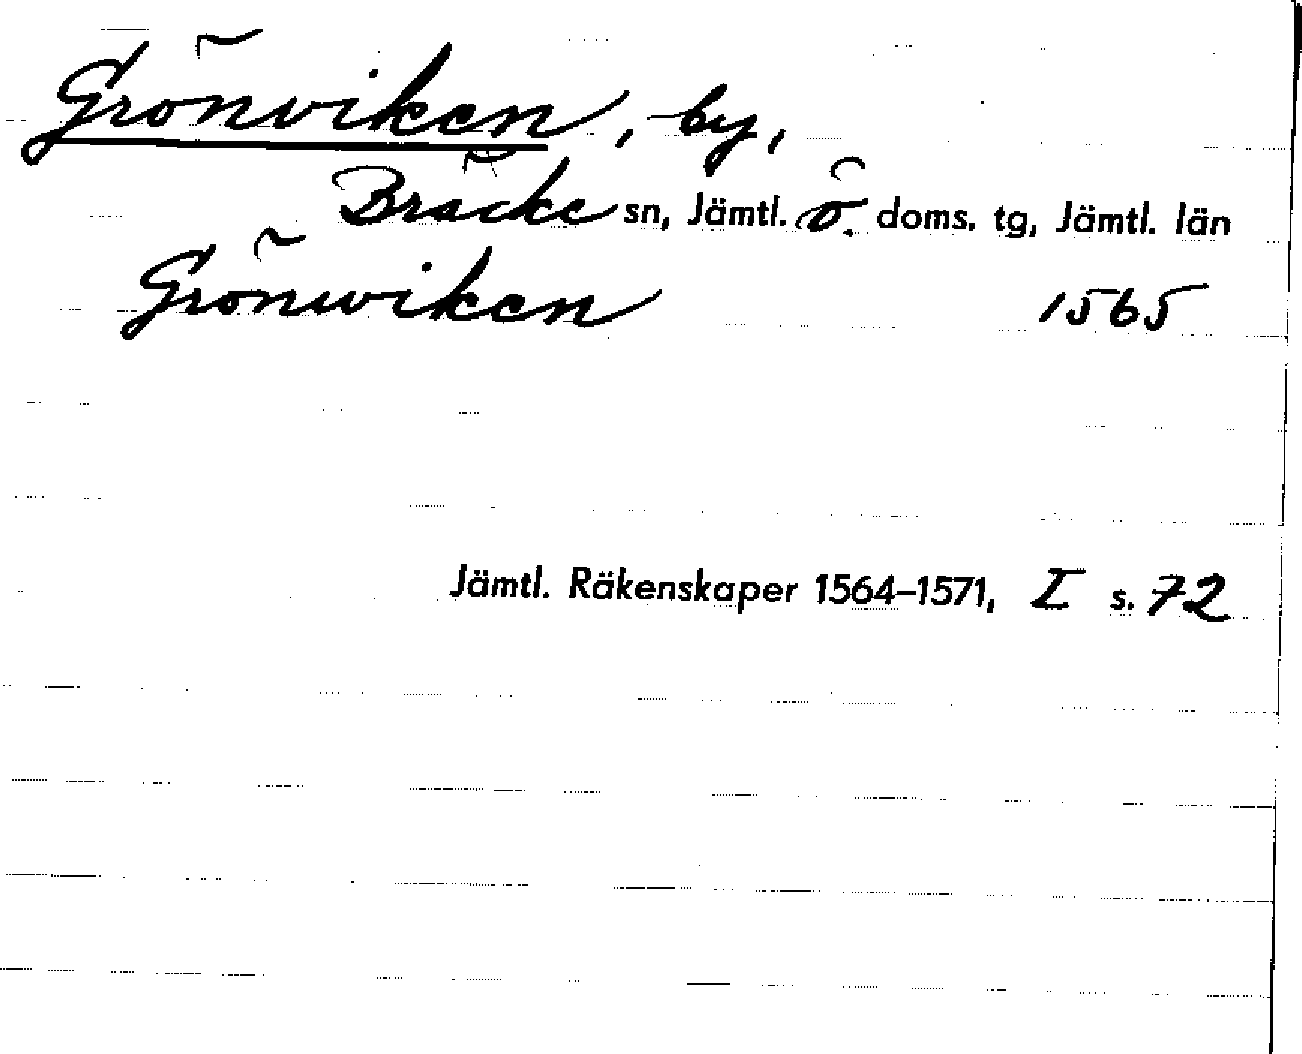 Grönviken, by,
Bräcke sn, Jämtl. ö. doms. tg, Jämtl. län
Grönwiken 1565
Jämtl. Räkenskaper 1564–1571, I s. 72